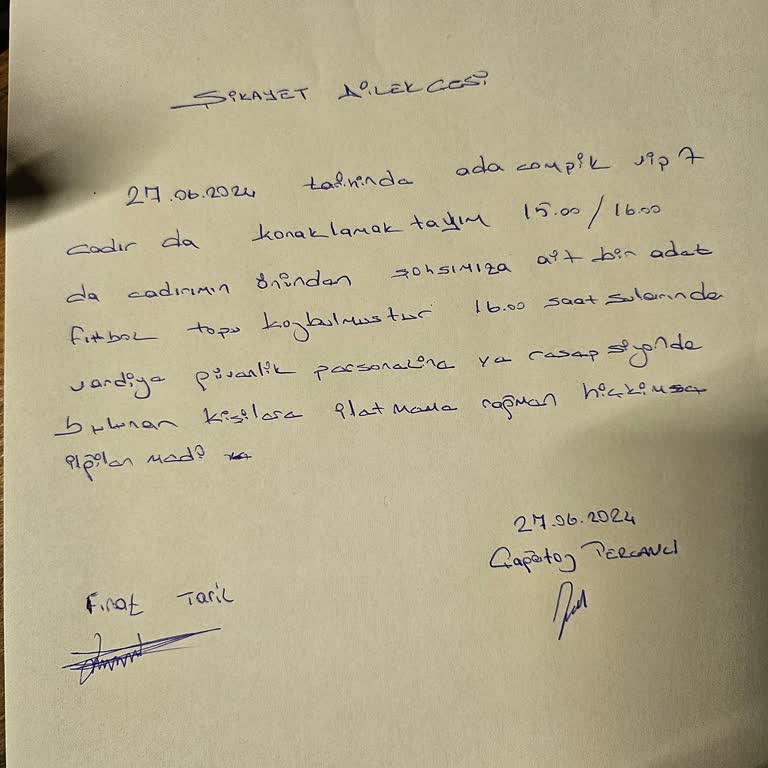 ŞİKAYET DİLEKCESİ
27.06.2024 tarihinda ada compik vip 7
cadır da konaklamak tayım 15.00/16.00
da cadırımın önündan şahsımıza ait bir adat
futbol topu kaybulmuştur 16.00 saat sularında
vardiya güvanlik parsonalina ya rasapsiyonda
bulunan kişilara ilatmama rağman hiçkimsa
ilgilan madi
27.06.2024
Fırat Taril